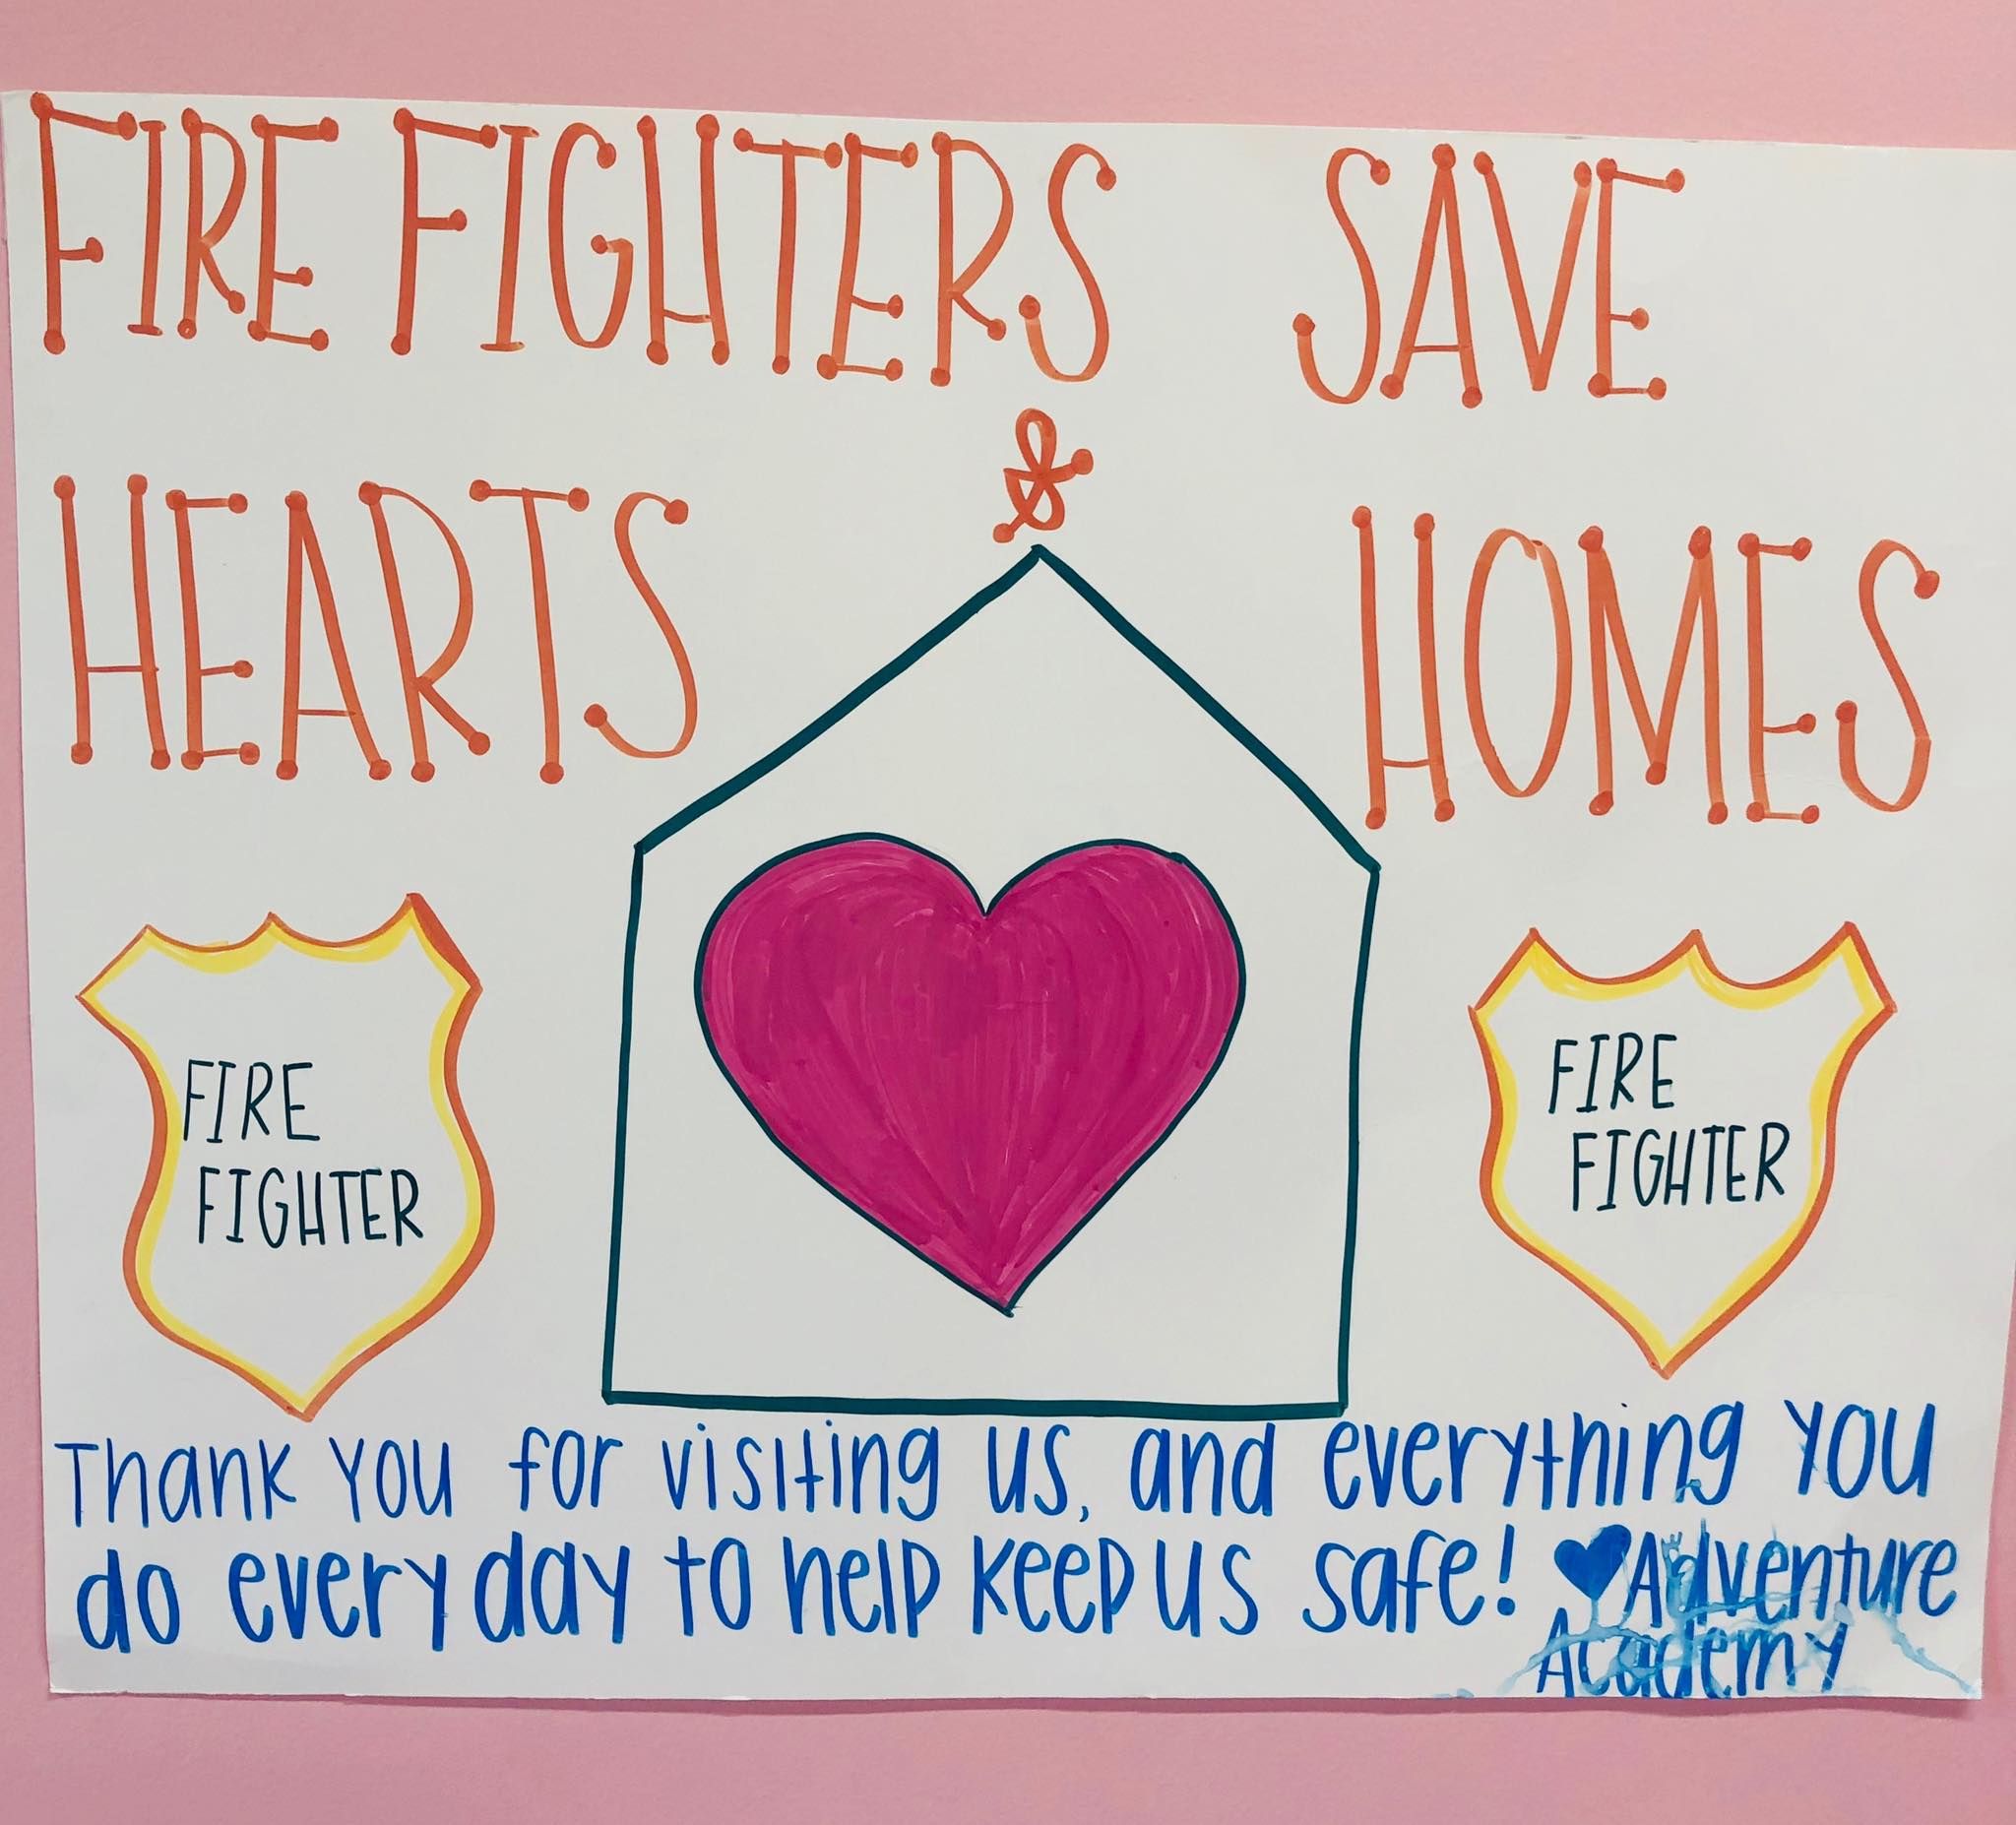 FIRE FIGHTERS SAVE
HEARTS & HOMES
FIRE
FIGHTER
FIRE
FIGHTER
Thank you for visiting us, and everything you
do every day to help keep us safe! ♥Adventure
Academy